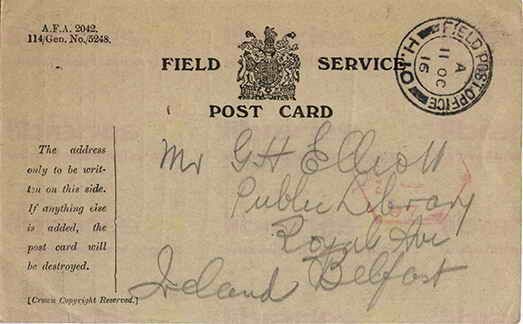 A.F.A. 2042.
114/Gen. No./5248.
FIELD SERVICE
POST CARD
FIELD POST OFFICE
H.10
A
11 OC
16
The address
only to be writ-
ten on this side.
If anything else
is added, the
post card will
be destroyed.
[Crown Copyright Reserved.]
Mr G H Elliott
Public Library
Royal Ave
Belfast
Ireland